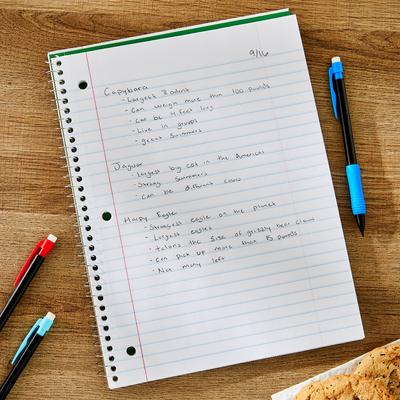 9/16
Capybara
- Largest Rodent
- Can weigh more than 100 pounds
- Can be 4 feet long
- Live in groups
- great swimmers
Jaguar
- largest big cat in the Americas
- Strong swimmers
- Can be different colors
Harpy Eagle
- Strongest eagle on the planet
- Largest eagles
- talons the size of grizzly bear claws
- Can pick up more than 15 pounds
- Not many left